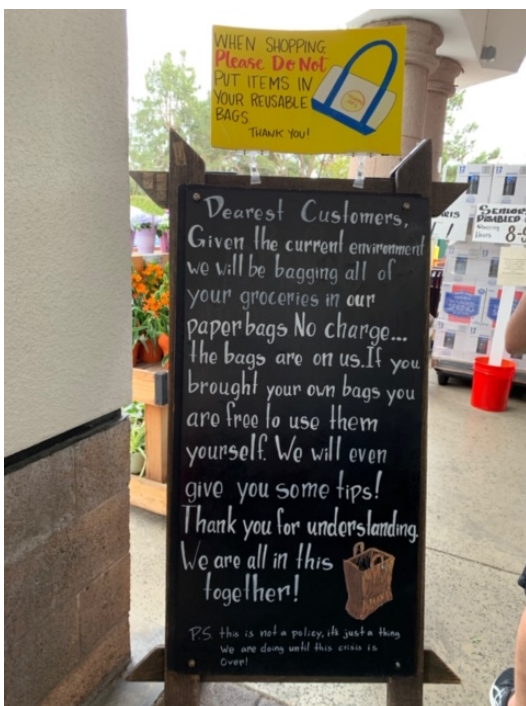 WHEN SHOPPING
Please Do Not
PUT ITEMS IN
YOUR REUSABLE
BAGS
THANK YOU!
Dearest Customers,
Given the current environment
we will be bagging all of
your groceries in our
paper bags. No charge...
the bags are on us. If you
brought your own bags you
are free to use them
yourself. We will even
give you some tips!
Thank you for understanding.
We are all in this
together!
P.S. this is not a policy, it's just a thing
We are doing until this crisis is
Over!
SENIORS
DISABLED
8-9